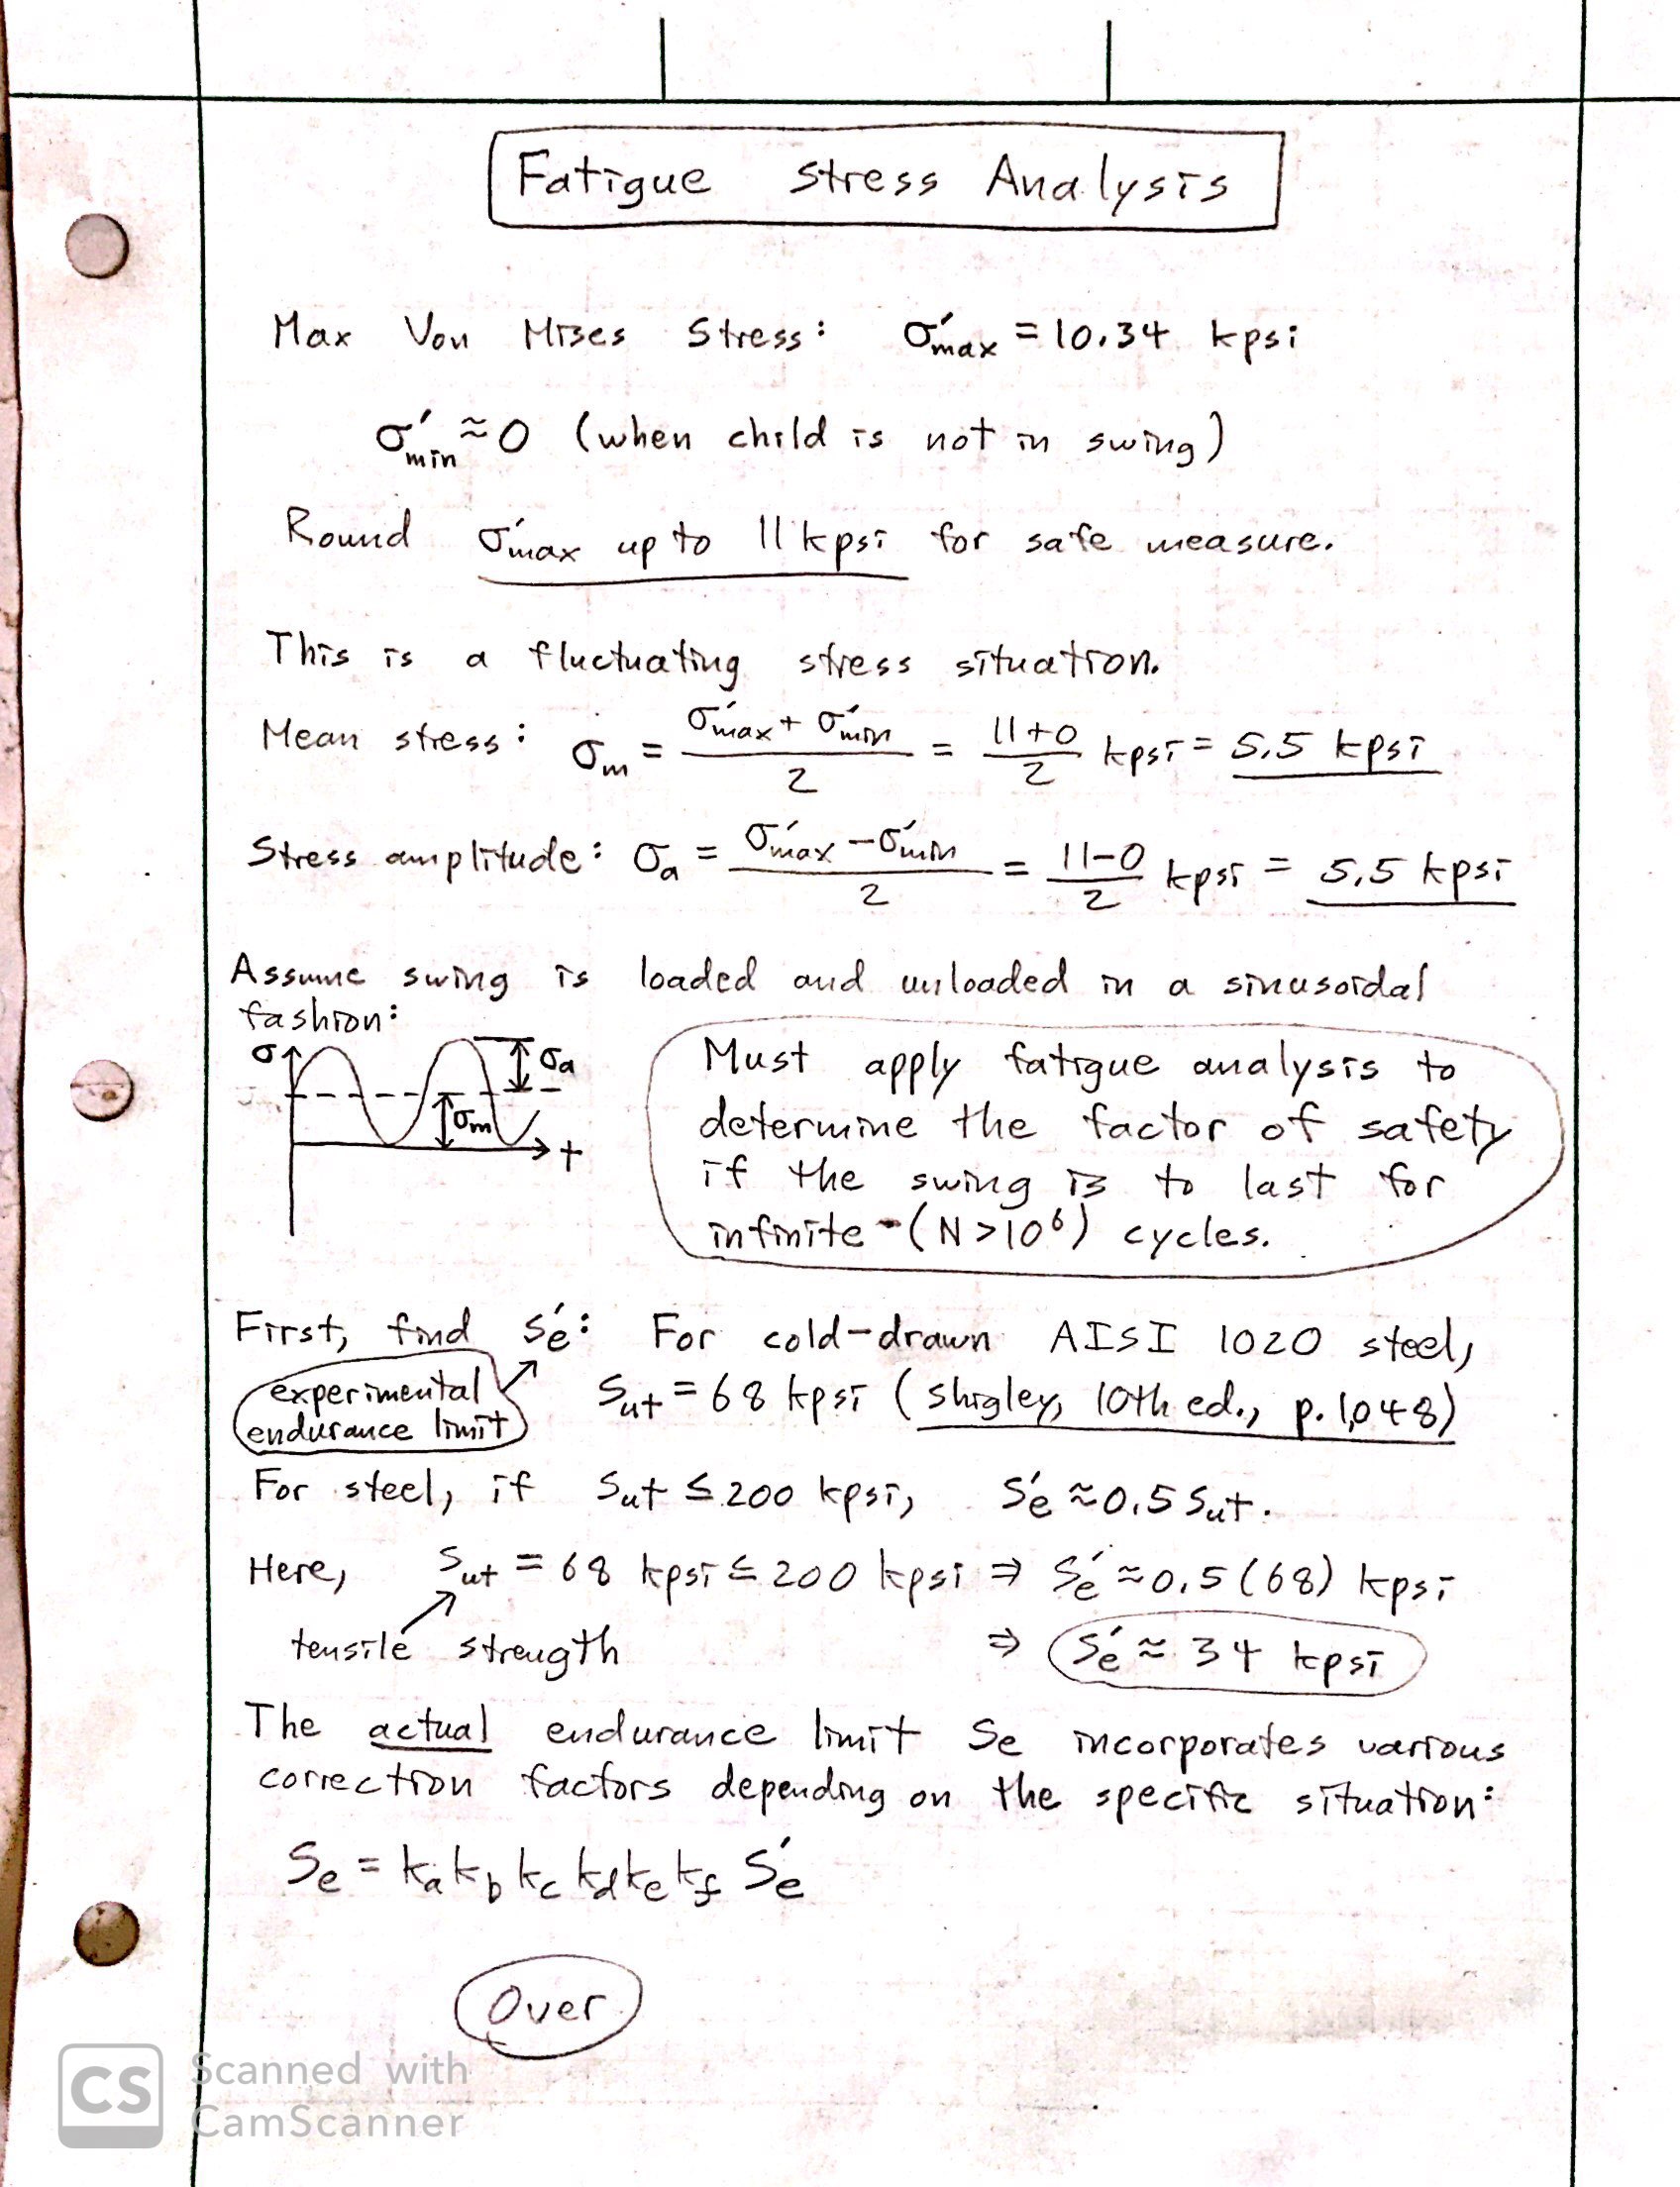 Fatigue Stress Analysis
Max Von Mises Stress: σ′max = 10.34 kpsi
σ′min ≈ 0 (when child is not in swing)
Round σ′max up to 11 kpsi for safe measure.
This is a fluctuating stress situation.
Mean stress: σm = (σ′max + σ′min)/2 = (11+0)/2 kpsi = 5.5 kpsi
Stress amplitude: σa = (σ′max − σ′min)/2 = (11−0)/2 kpsi = 5.5 kpsi
Assume swing is loaded and unloaded in a sinusoidal
fashion:
σ σa
σm
t
Must apply fatigue analysis to
determine the factor of safety
if the swing is to last for
infinite (N>10⁶) cycles.
First, find S′e: For cold-drawn AISI 1020 steel,
experimental
endurance limit
Sut = 68 kpsi (Shigley, 10th ed., p. 1,048)
For steel, if Sut ≤ 200 kpsi, S′e ≈ 0.5 Sut.
Here, Sut = 68 kpsi ≤ 200 kpsi ⇒ S′e ≈ 0.5(68) kpsi
tensile strength ⇒ S′e ≈ 34 kpsi
The actual endurance limit Se incorporates various
correction factors depending on the specific situation:
Se = ka kb kc kd ke kf S′e
Over
CS Scanned with
CamScanner